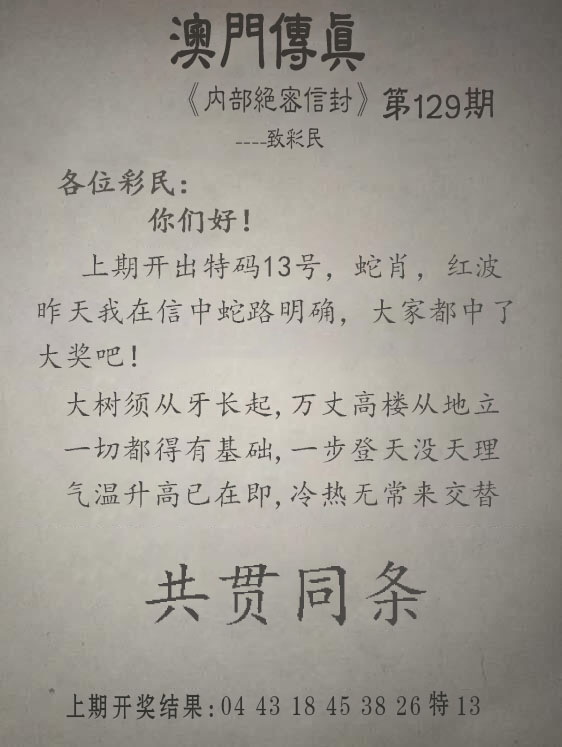 澳門傳真
《内部絕密信封》第129期
----致彩民
各位彩民:
你们好!
上期开出特码13号，蛇肖，红波
昨天我在信中蛇路明确，大家都中了
大奖吧!
大树须从牙长起,万丈高楼从地立
一切都得有基础,一步登天没天理
气温升高已在即,冷热无常来交替
共贯同条
上期开奖结果:04 43 18 45 38 26 特 13